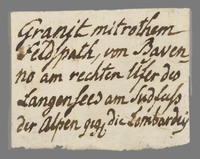 Granit mit rothem
Feldspath, von Baven-
no am rechten Ufer des
Langenseed am Südfuss
der Alpen geg. die Lombardey